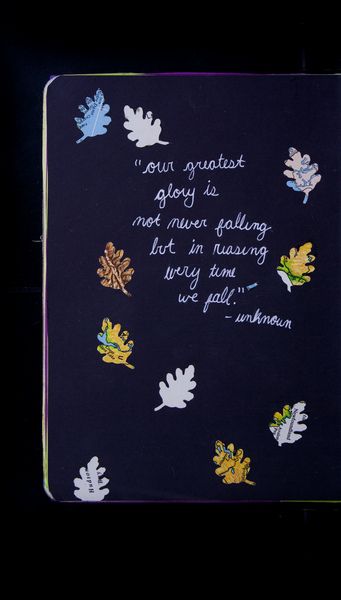 "our greatest
glory is
not never falling
but in riasing
every time
we fall."
- unknown